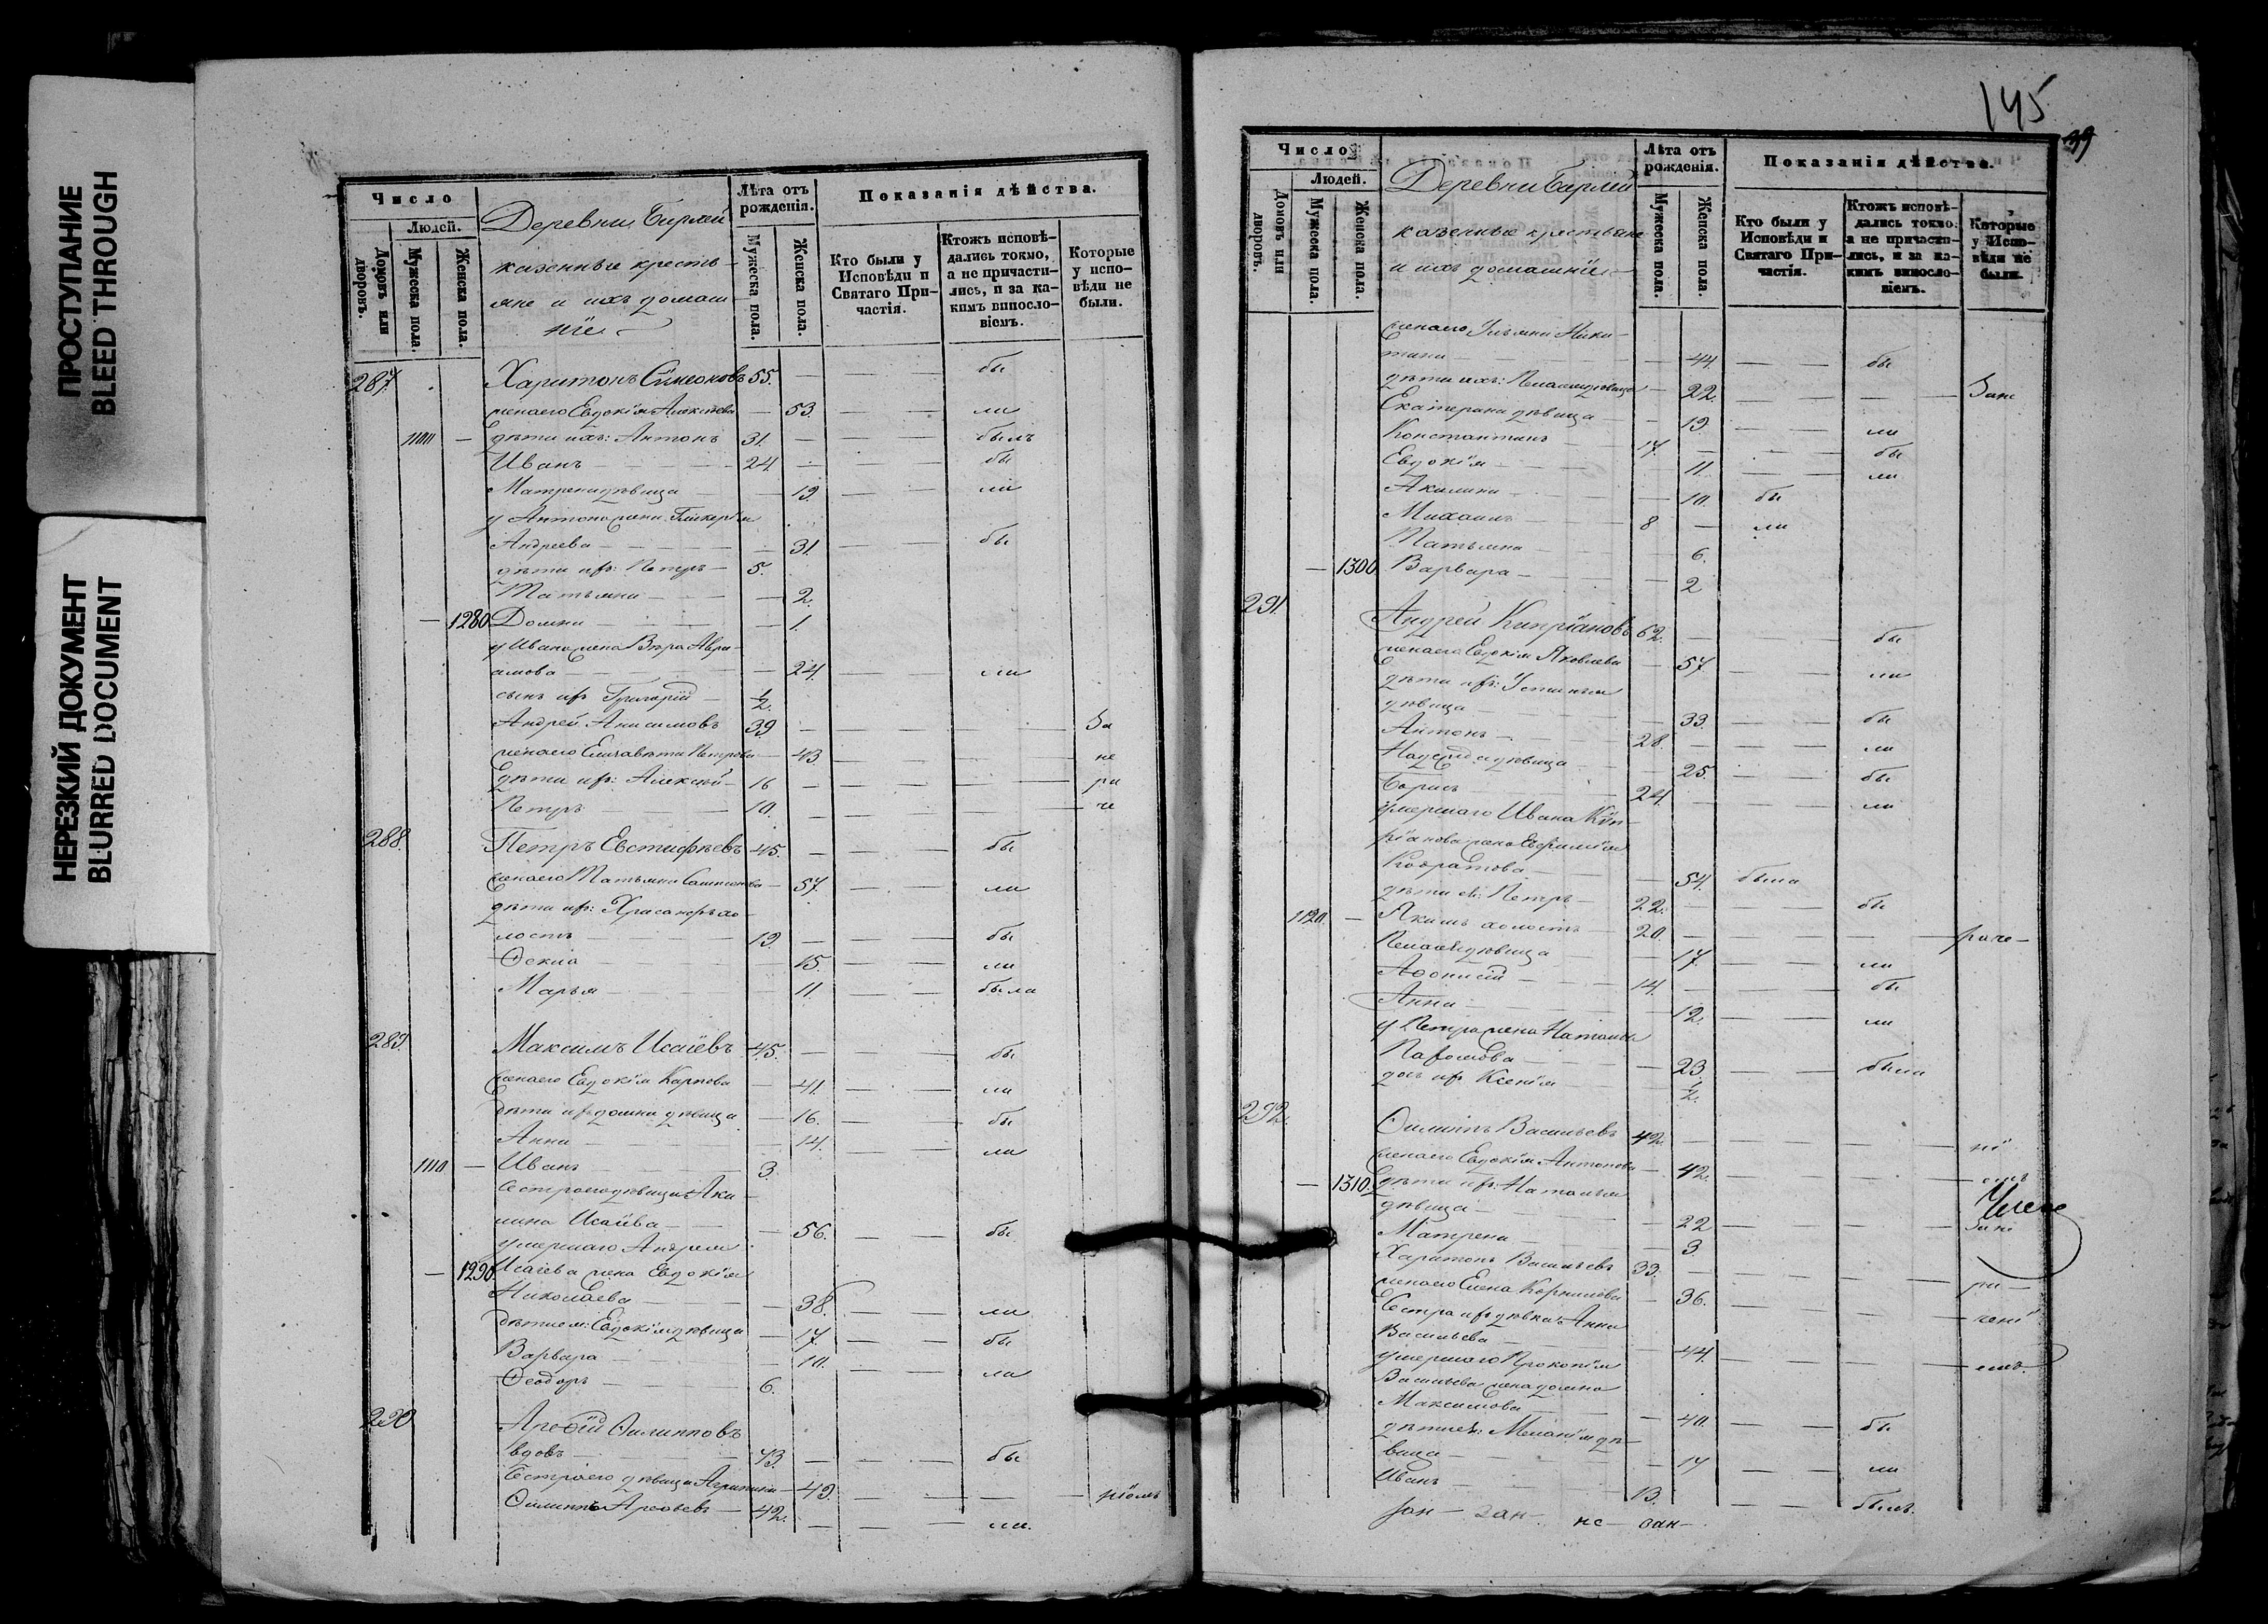 ПРОСТУПАНИЕ
BLEED THROUGH
НЕРЕЗКИЙ ДОКУМЕНТ
BLURRED DOCUMENT
Число
Людей.
Домовъ или дворовъ.
Мужеска пола.
Женска пола.
Деревни Бирлей
казенные кресть-
яне и ихъ домаш-
ніе
Лѣта отъ рожденія.
Мужеска пола.
Женска пола.
Показанія дѣйства.
Кто были у Исповѣди и Святаго Причастія.
Ктожъ исповѣдались токмо, а не причастились, и за какимъ винословіемъ.
Которые у исповѣди не были.
287. Харитонъ Симеоновъ 55. — — бы
жена его Евдокія Алексѣева — 53. — — ли
1100 — дѣти ихъ: Антонъ 31. — — — былъ
Иванъ 24. — — — бы
Матрена дѣвица — 19. — — ли
у Антона жена Гликерія
Андреева — 31. — — бы
дѣти их: Петръ 5.
Татьяна — 2.
— 1280. Домна — 1.
у Ивана жена Вѣра Авра-
амова — 24. — — ли
сынъ их Григорій ½.
Андрей Анисимовъ 39 — — — — За
жена его Елизавета Петрова — 43. — — — не
дѣти их: Алексѣй 16 — — — — ра
Петръ 10. — — — — че
288. Петръ Евстифѣевъ 45. — — — бы
жена его Татьяна Самсонова — 57. — — ли
дѣти их: Хрисанфъ хо-
лостъ 19. — — — бы
Фекла — 15. — — ли
Марья — 11. — — была
289. Максимъ Исаевъ 45. — — — бы
жена его Евдокія Карпова — 41. — — ли
дѣти их Домна дѣвица — 16. — — бы
Анна — 14. — — ли
1110. — Иванъ 3.
Сестра его дѣвица Аки-
лина Исаева — 56. — — бы
умершаго Андрея
— 1290. Исаева жена Евдокія
Николаева — 38. — — ли
дѣти ея: Евдокія дѣвица — 17. — — бы
Варвара — 10. — — ла
Феодоръ 6.
290. Арефій Филипповъ
вдовъ 43. — — — бы
Сестра его дѣвица Агрипина — 49. — — —
Филиппъ Арефьевъ 42. — — — ли.
145
39
Число
Людей.
Домовъ или дворовъ.
Мужеска пола.
Женска пола.
Деревни Бирлей
казенные крестьяне
и ихъ домашніе
Лѣта отъ рожденія.
Мужеска пола.
Женска пола.
Показанія дѣйства.
Кто были у Исповѣди и Святаго Причастія.
Ктожъ исповѣдались токмо, а не причастились, и за какимъ винословіемъ.
Которые у Исповѣди не были.
жена его Ульяна Ники-
тина — 44. — — бы
дѣти ихъ: Пелагея дѣвица — 22. — — —
Екатерина дѣвица — 19. — — ли
Константинъ 17. — — — бы
Евдокія — 11. — — ли
Акилина — 10. бы
Михаилъ 8 — ли
Татьяна — 6.
— 1300. Варвара — 2
291. Андрей Кипріановъ 62. — — — бы
жена его Евдокія Яковлева — 57. — — ли
дѣти их: Устинья
дѣвица — 33. — — бы
Антонъ 28. — — — ли
Надежда дѣвица — 25. — — бы
Борисъ 24. — — — ли
умершаго Ивана Кип-
ріанова жена Евфимія
Кодратова — 54. была
дѣти ея: Петръ 22. — — — бы
1120. — Якимъ холостъ 20. — — — —
Пелагея дѣвица — 17. — — ли
Афонасій 14. — — — бы
Анна — 12. — — ли
у Петра жена Наталья
Пафомова — 23. — — была
дочь их Ксенія — ½.
292. Филиппъ Васильевъ 42. — — — —
жена его Евдокія Антонова — 42. — — —
— 1310. дѣти их: Наталья
дѣвица — 22 — — —
Матрена — 3
Харитонъ Васильевъ 33. — — — —
жена его Елена Корнилова — 36. — — —
Сестра их дѣвка Анна
Васильева — 44. — — —
умершаго Прокопія
Васильева жена Домна
Максимова — 40. — — бы
дѣти ея: Меланія дѣ-
вица — 17 — — ли
Иванъ 13. — — — былъ.